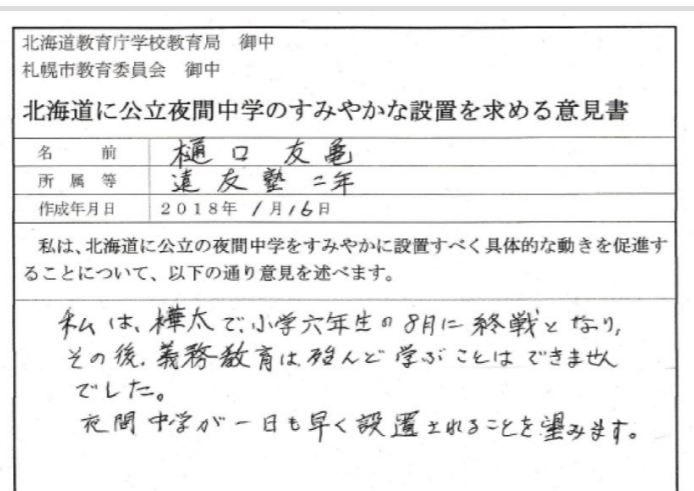 北海道教育庁学校教育局 御中
札幌市教育委員会 御中
北海道に公立夜間中学のすみやかな設置を求める意見書
名 前 樋口友亀
所属等 遠友塾 二年
作成年月日 2018年1月16日
私は、北海道に公立の夜間中学をすみやかに設置すべく具体的な動きを促進す
ることについて、以下の通り意見を述べます。
私は、樺太で、小学六年生の8月に終戦となり、
その後、義務教育は殆んど学ぶことはできません
でした。
夜間中学が一日も早く設置されることを望みます。